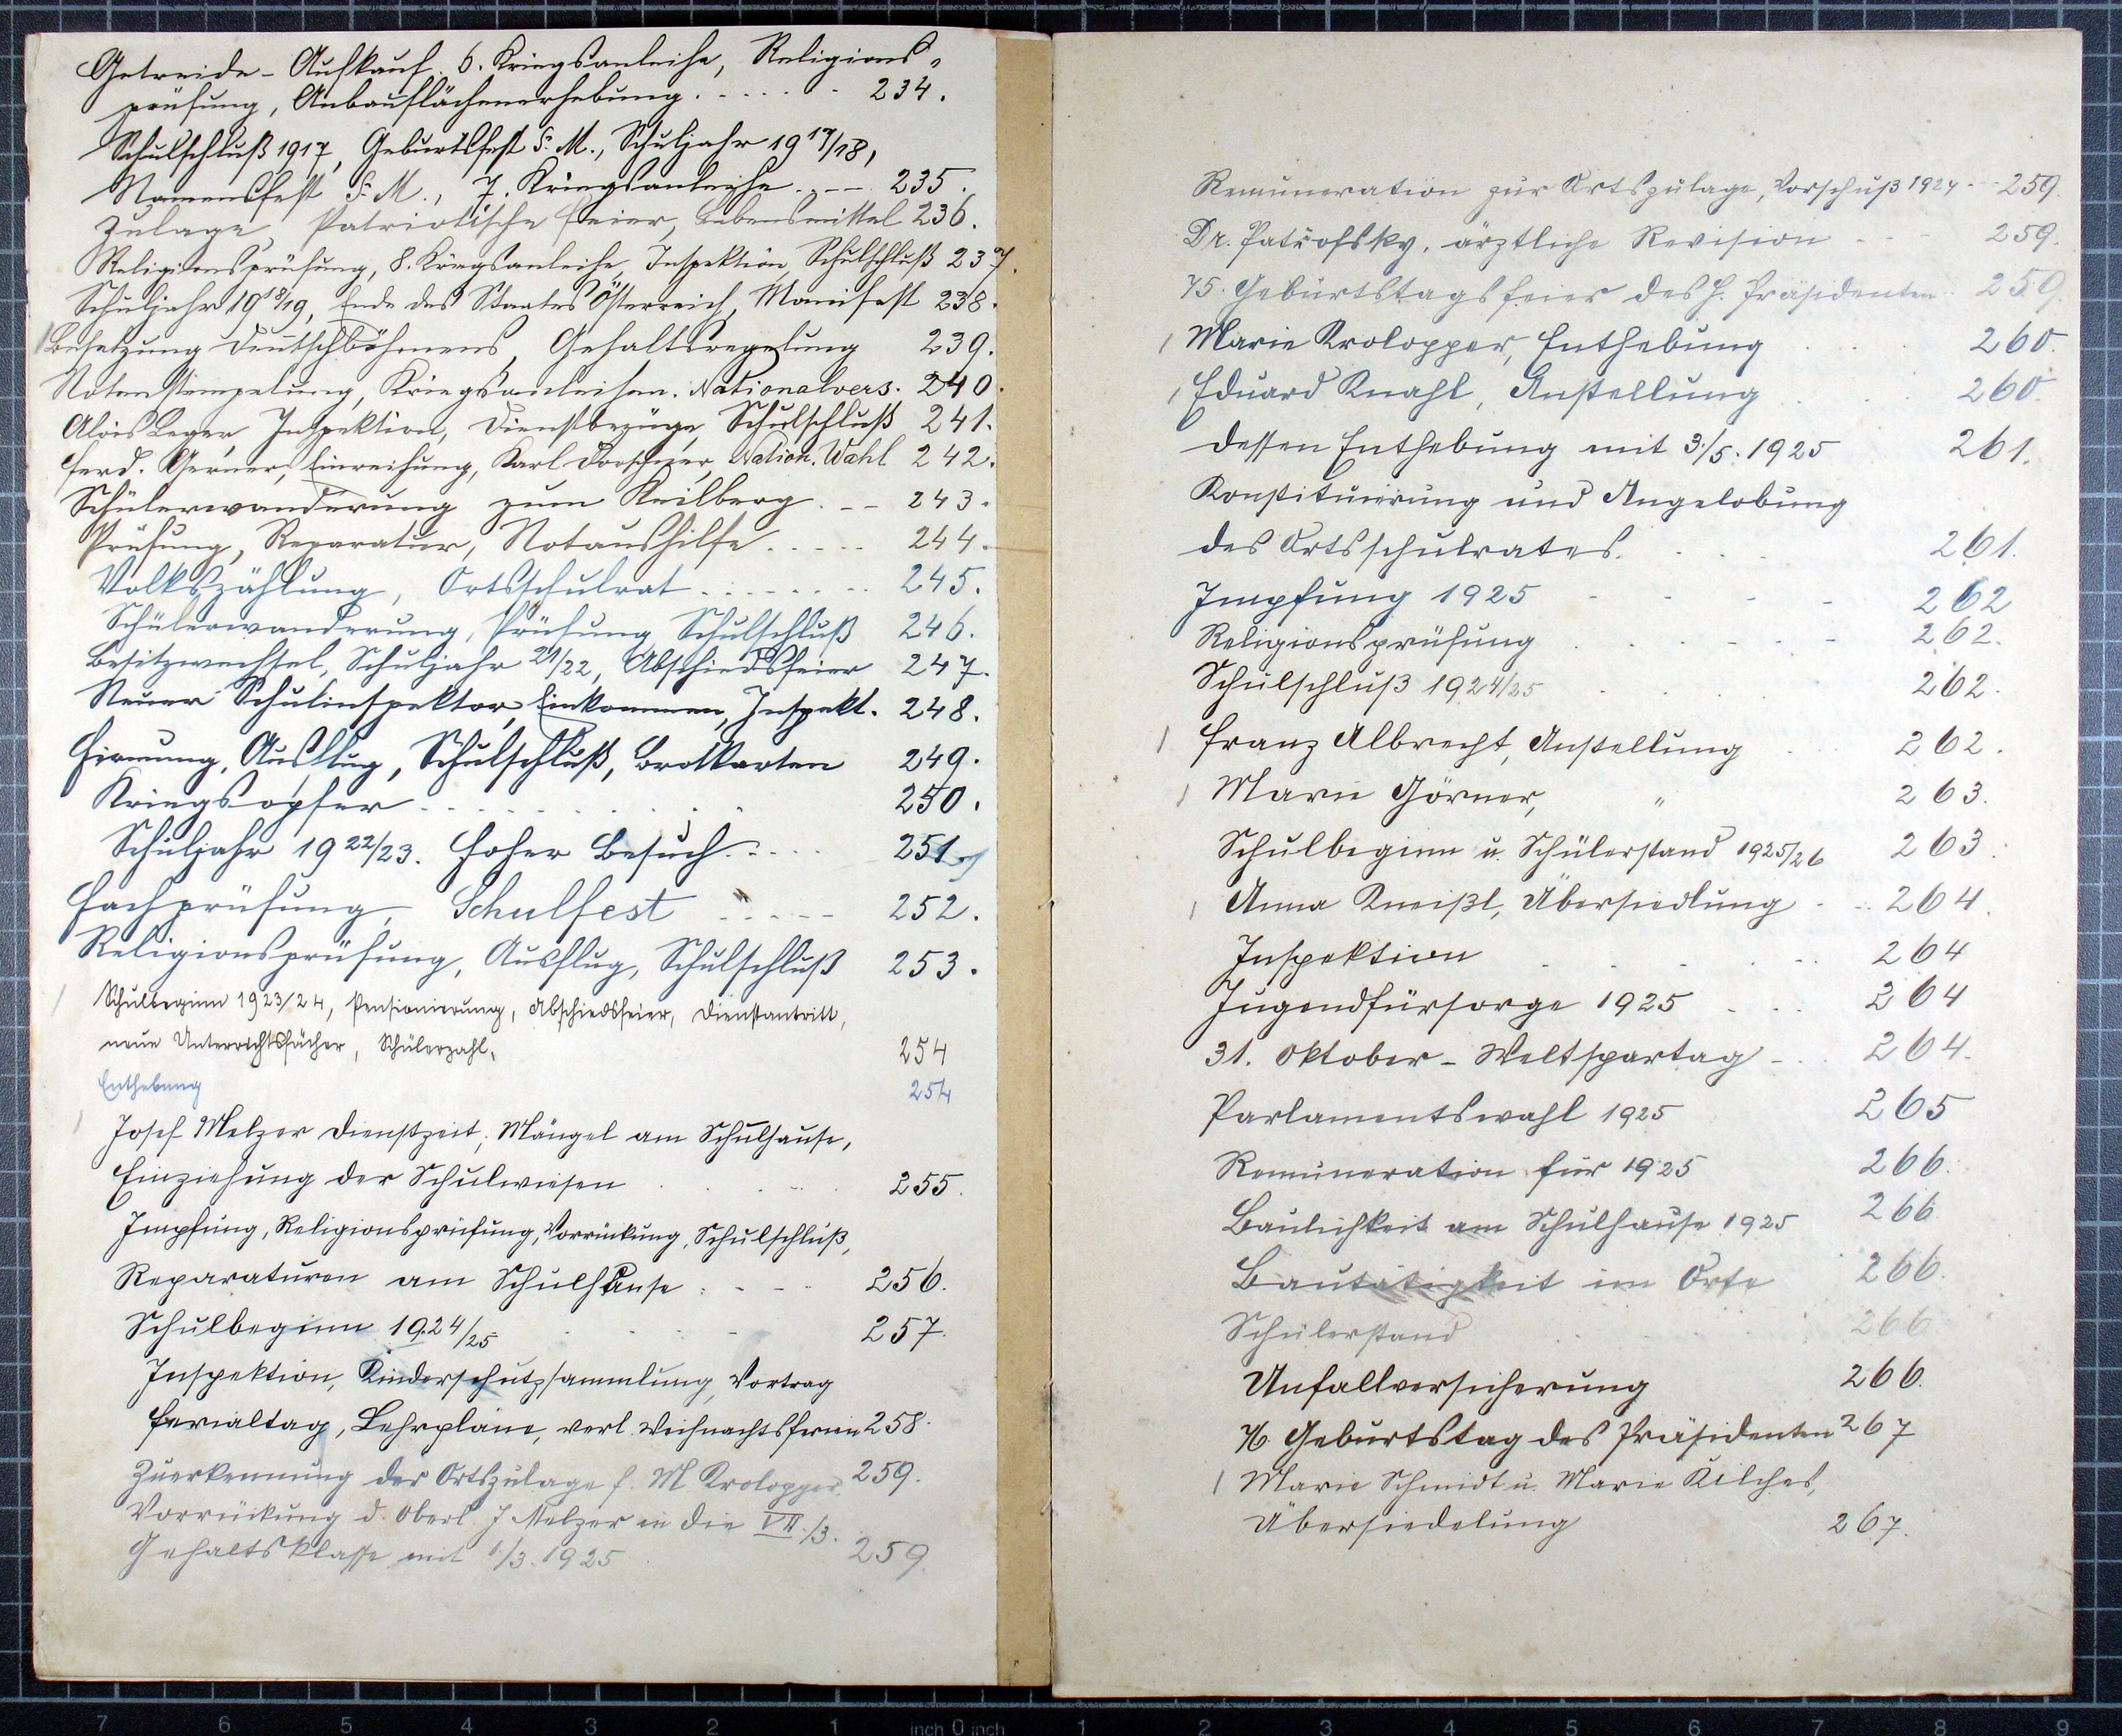 Getreide-Aufkauf. 6. Kriegsanleihe, Religions-
prüfung, Anbauflächenerhebung. . . . . . 234.
Schulschluß 1917, Geburtsfest S. M., Schuljahr 19 17/18,
Namensfest S. M., 7. Kriegsanleihe. . - - 235.
Zulage, Patriotische Feier, Lebensmittel 236.
Religionsprüfung, 8. Kriegsanleihe, Inspektion, Schulschluß 237.
Schuljahr 19 18/19, Ende des Staates Österreich, Manifest 238.
Besetzung Deutschböhmens, Gehaltsregelung 239.
Notenstempelung, Kriegsanleihen. Nationalvers. 240.
Alois Leger, Inspektion, Dienstbezüge, Schulschluß 241.
Ferd. Gerner, Einreihung, Karl Nation. Wahl 242.
Schülerwanderung zum Keilberg. - - 243.
Prüfung, Reparatur, Notaushilfe. . . . . 244.
Volkszählung, Ortsschulrat . . . . . . . 245.
Schülerwanderung, Prüfung Schulschluß 246.
Besitzwechsel, Schuljahr 21/22, Abschiedsfeier 247.
Neuer Schulinspektor, Einkommen, Inspekt. 248.
Firmung, Ausflug, Schulschluß, Brotkarten 249.
Kriegsopfer . . . . . . . . 250.
Schuljahr 19 22/23. Hoher Besuch. . . . . 251.
Fachprüfung, Schulfest . . - - - 252.
Religionsprüfung, Ausflug, Schulschluß 253.
Schulbeginn 1923/24, Pensionierung, Abschiedsfeier, Dienstantritt,
neue Unterrichtsfächer, Schülerzahl, 254
Enthebung 254
Josef Melzer Dienstzeit, Mängel am Schulhause,
Einziehung der Schulwiesen . . . . 255.
Impfung, Religionsprüfung, Vorrückung, Schulschluß,
Reparaturen am Schulhause . - - - 256.
Schulbeginn 1924/25 . . . - 257.
Inspektion, Kinderschutzsammlung, Vortrag
Ferialtag, Lehrpläne, verl. Weihnachtsferien 258.
Zuerkennung der Ortszulage f. M. Krolopper 259.
Vorrückung d. Oberl. J. Melzer in die VII./3.
Gehaltsklasse mit 1./3. 1925 . 259.
Remuneration zur Ortszulage, Vorschuß 1924 - - 259.
Dr. Patrofsky, ärztliche Revision - - - 259.
75. Geburtstagsfeier des H. Präsidenten 259.
Marie Krolopper, Enthebung . . . 260.
Eduard Knahl, Anstellung . . . 260.
Dessen Enthebung mit 3./5. 1925 261.
Konstituierung und Angelobung
des Ortsschulrates. . . . 261.
Impfung 1925 - - - - 262
Religionsprüfung . . . - - - 262.
Schulschluß 1924/25 . . . . 262.
Franz Albrecht, Anstellung . . 262.
Marie Görner, " 263.
Schulbeginn u. Schülerstand 1925/26 263.
Anna Kneißl, Übersiedlung - - 264.
Inspektion . . . . . . 264
Jugendfürsorge 1925 - . . 264
31. Oktober - Weltspartag - . . 264.
Parlamentswahl 1925 265
Remuneration für 1925 266.
Baulichkeit am Schulhause 1925 266
Bautätigkeit im Orte 266.
Schülerstand . . . . 266
Unfallversicherung 266.
76. Geburtstag des Präsidenten 267
Marie Schmidt u. Marie Kilches,
Übersiedelung 267.
7 6 5 4 3 2 1 inch 0 inch 1 2 3 4 5 6 7 8 9